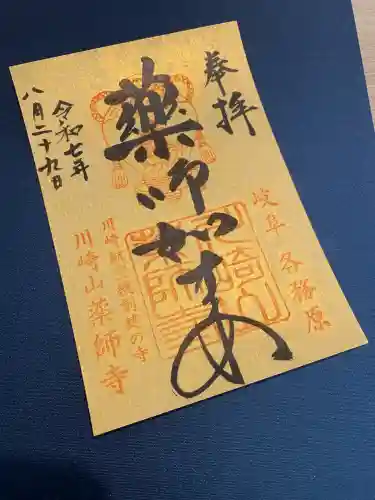 奉拝
岐阜 各務原
薬師如来
川崎山薬師寺
令和七年
八月二十九日
川崎山薬師寺